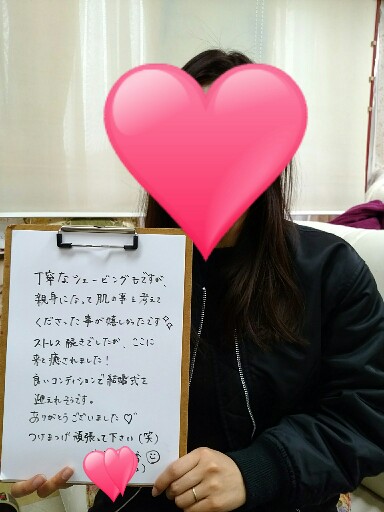 丁寧なシェービングもですが、
親身になって肌の事を考えて
くださった事が嬉しかったです
ストレス続きでしたが、ここに
来て癒されました！
良いコンディションで結婚式を
迎えれそうです。
ありがとうございました♡
つけまつげ頑張って下さい（笑）